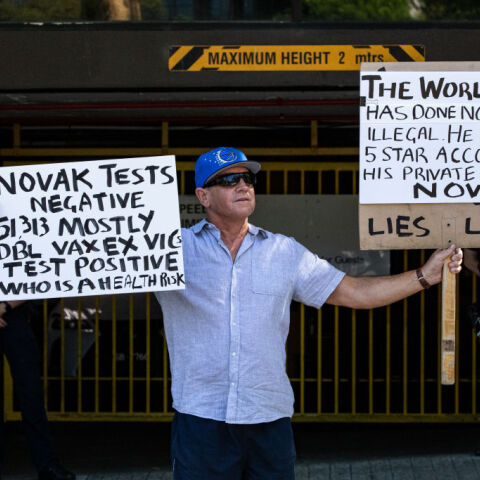 MAXIMUM HEIGHT 2 mtrs
NOVAK TESTS
NEGATIVE
51,313 MOSTLY
DBL VAXEX VICS
TEST POSITIVE
WHO IS A HEALTH RISK
THE WORL
HAS DONE NO
ILLEGAL. HE
5 STAR ACCO
HIS PRIVATE
NOV
LIES. L
Guests